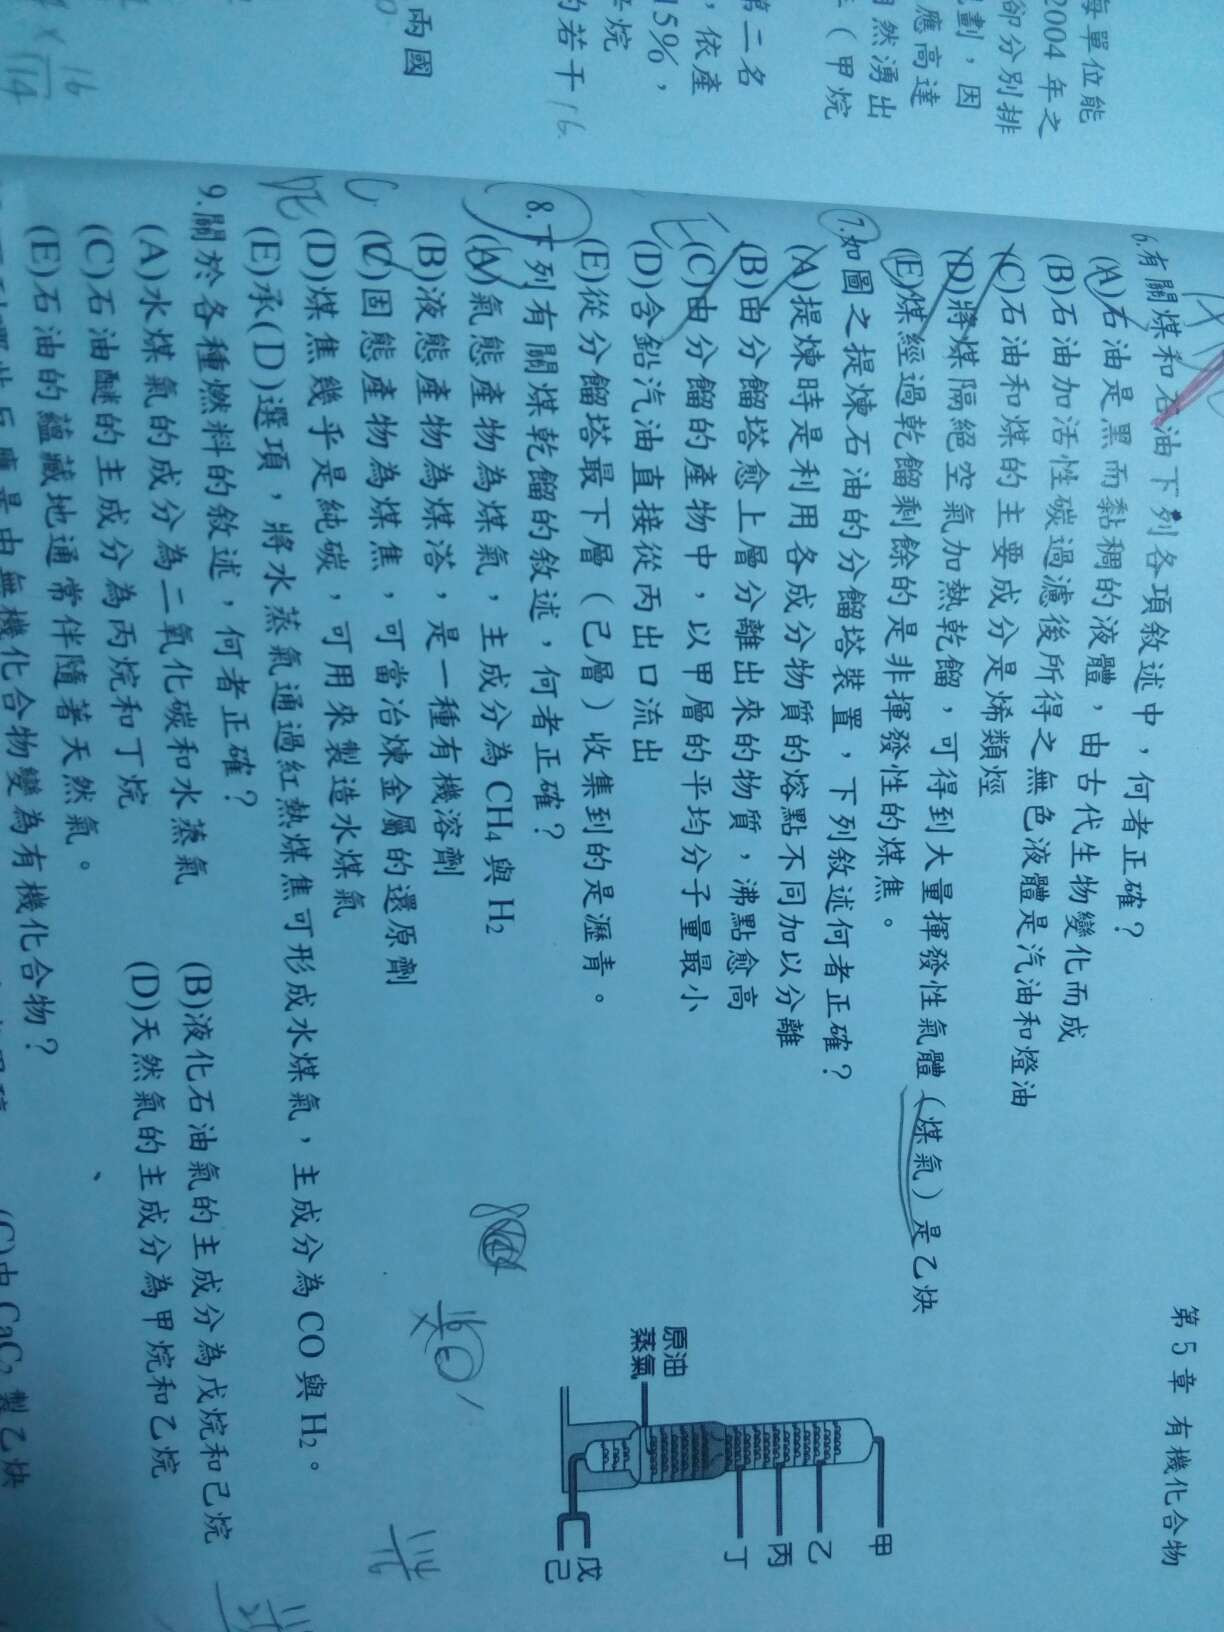 每單位能
2004年之
卻分別排
劃，因
應高達
然湧出
（甲烷
第二名
，依產
15%，
烷
的若干
16
兩國
16
114
第5章 有機化合物
6.有關煤和石油下列各項敘述中，何者正確？
(A)石油是黑而黏稠的液體，由古代生物變化而成
(B)石油加活性碳過濾後所得之無色液體是汽油和燈油
(C)石油和煤的主要成分是烯類烴
(D)將煤隔絕空氣加熱乾餾，可得到大量揮發性氣體（煤氣）是乙炔
(E)煤經過乾餾剩餘的是非揮發性的煤焦。
7.如圖之提煉石油的分餾塔裝置，下列敘述何者正確？
(A)提煉時是利用各成分物質的熔點不同加以分離
(B)由分餾塔愈上層分離出來的物質，沸點愈高
(C)由分餾的產物中，以甲層的平均分子量最小
(D)含鉛汽油直接從丙出口流出
(E)從分餾塔最下層（己層）收集到的是瀝青。
原油
蒸氣
甲
乙
丙
丁
戊
己
8.下列有關煤乾餾的敘述，何者正確？
(A)氣態產物為煤氣，主成分為CH4與H2
(B)液態產物為煤溚，是一種有機溶劑
(C)固態產物為煤焦，可當冶煉金屬的還原劑
(D)煤焦幾乎是純碳，可用來製造水煤氣
(E)承(D)選項，將水蒸氣通過紅熱煤焦可形成水煤氣，主成分為CO與H2。
9.關於各種燃料的敘述，何者正確？
(A)水煤氣的成分為二氧化碳和水蒸氣 (B)液化石油氣的主成分為戊烷和己烷
(C)石油醚的主成分為丙烷和丁烷 (D)天然氣的主成分為甲烷和乙烷
(E)石油的蘊藏地通常伴隨著天然氣。
是由無機化合物變為有機化合物？
(C)由CaC2製乙炔